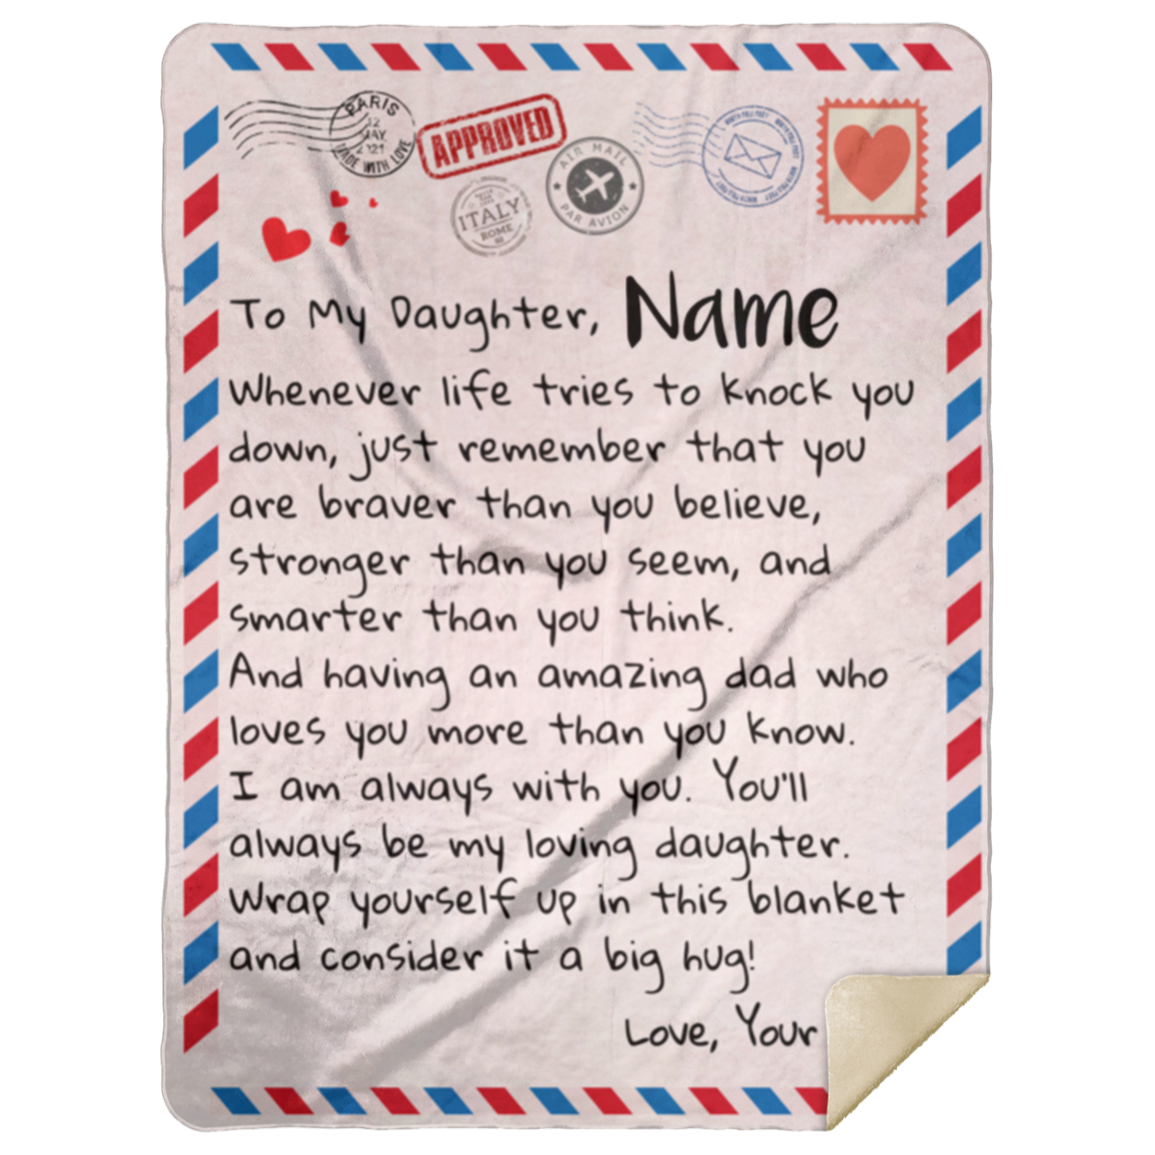 PARIS
12
MAY
MADE WITH LOVE
APPROVED
AIR MAIL
PAR AVION
ITALY
ROME
To My Daughter, Name
Whenever life tries to knock you
down, just remember that you
are braver than you believe,
stronger than you seem, and
smarter than you think.
And having an amazing dad who
loves you more than you know.
I am always with you. You'll
always be my loving daughter.
Wrap yourself up in this blanket
and consider it a big hug!
Love, Your